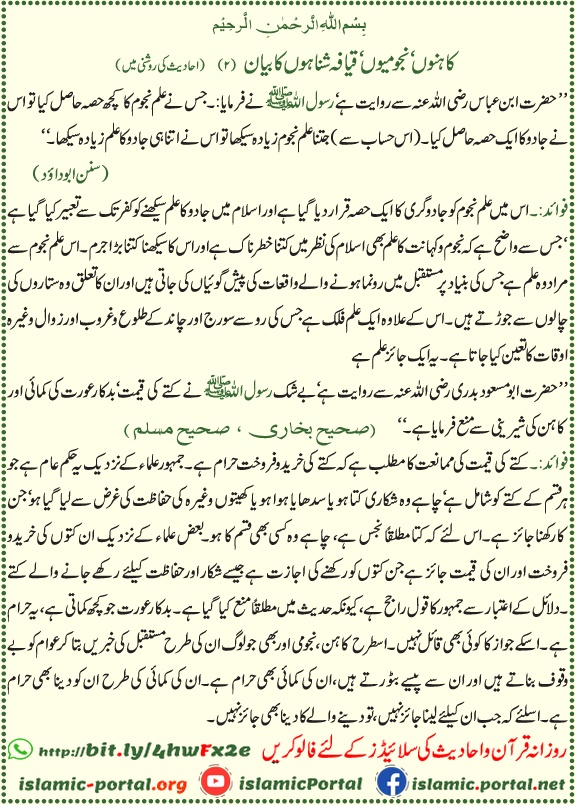 بِسْمِ اللهِ الرَّحْمٰنِ الرَّحِيْمِ
کاہنوں، نجومیوں، قیافہ شناہوں کا بیان (۲) (احادیث کی روشنی میں)
’’حضرت ابن عباس رضی اللہ عنہ سے روایت ہے‘ رسول اللہ ﷺ نے فرمایا:۔ جس نے علم نجوم کا کچھ حصہ حاصل کیا تو اس
نے جادو کا ایک حصہ حاصل کیا۔ (اس حساب سے) جتنا علم نجوم زیادہ سیکھا تو اس نے اتنا ہی جادو کا علم زیادہ سیکھا۔‘‘
(سنن ابوداؤد)
فوائد:۔ اس میں علم نجوم کو جادوگری کا ایک حصہ قرار دیا گیا ہے اور اسلام میں جادو کا علم سیکھنے کو کفر تک سے تعبیر کیا گیا ہے
‘ جس سے واضح ہے کہ نجوم و کہانت کا علم بھی اسلام کی نظر میں کتنا خطرناک ہے اور اس کا سیکھنا کتنا بڑا جرم۔ اس علم نجوم سے
مراد وہ علم ہے جس کی بنیاد پر مستقبل میں رونما ہونے والے واقعات کی پیش گوئیاں کی جاتی ہیں اور ان کا تعلق وہ ستاروں کی
چالوں سے جوڑتے ہیں۔ اس کے علاوہ ایک علم فلک ہے جس کی رو سے سورج اور چاند کے طلوع و غروب اور زوال وغیرہ
اوقات کا تعین کیا جاتا ہے۔ یہ ایک جائز علم ہے
’’حضرت ابو مسعود بدری رضی اللہ عنہ سے روایت ہے‘ بے شک رسول اللہ ﷺ نے کتے کی قیمت‘ بدکار عورت کی کمائی اور
کاہن کی شیرینی سے منع فرمایا ہے۔‘‘ (صحیح بخاری ، صحیح مسلم)
فوائد:۔ کتے کی قیمت کی ممانعت کا مطلب ہے کہ کتے کی خرید و فروخت حرام ہے۔ جمہور علماء کے نزدیک یہ حکم عام ہے جو
ہر قسم کے کتے کو شامل ہے‘ چاہے وہ شکاری کتا ہو یا سدھایا ہوا ہو یا کھیتوں وغیرہ کی حفاظت کی غرض سے لیا گیا ہو‘ جن
کا رکھنا جائز ہے۔ اس لئے کہ کتا مطلقاً نجس ہے، چاہے وہ کسی بھی قسم کا ہو۔ بعض علماء کے نزدیک ان کتوں کی خرید و
فروخت اور ان کی قیمت جائز ہے جن کتوں کو رکھنے کی اجازت ہے جیسے شکار اور حفاظت کیلئے رکھے جانے والے کتے
۔ دلائل کے اعتبار سے جمہور کا قول راجح ہے، کیونکہ حدیث میں مطلقاً منع کیا گیا ہے۔ بدکار عورت جو کچھ کماتی ہے، یہ حرام
ہے۔ اسکے جواز کا کوئی بھی قائل نہیں۔ اسطرح کاہن، نجومی اور بھی جو لوگ ان کی طرح مستقبل کی خبریں بتا کر عوام کو بے
وقوف بناتے ہیں اور ان سے پیسے بٹورتے ہیں، ان کی کمائی بھی حرام ہے۔ ان کی کمائی کی طرح ان کو دینا بھی حرام
ہے۔ اسلئے کہ جب ان کیلئے لینا جائز نہیں، تو دینے والے کا دینا بھی جائز نہیں۔
روزانہ قرآن و احادیث کی سلائیڈز کے لئے فالو کریں http://bit.ly/4hwFx2e
islamic-portal.org islamicPortal islamic.portal.net